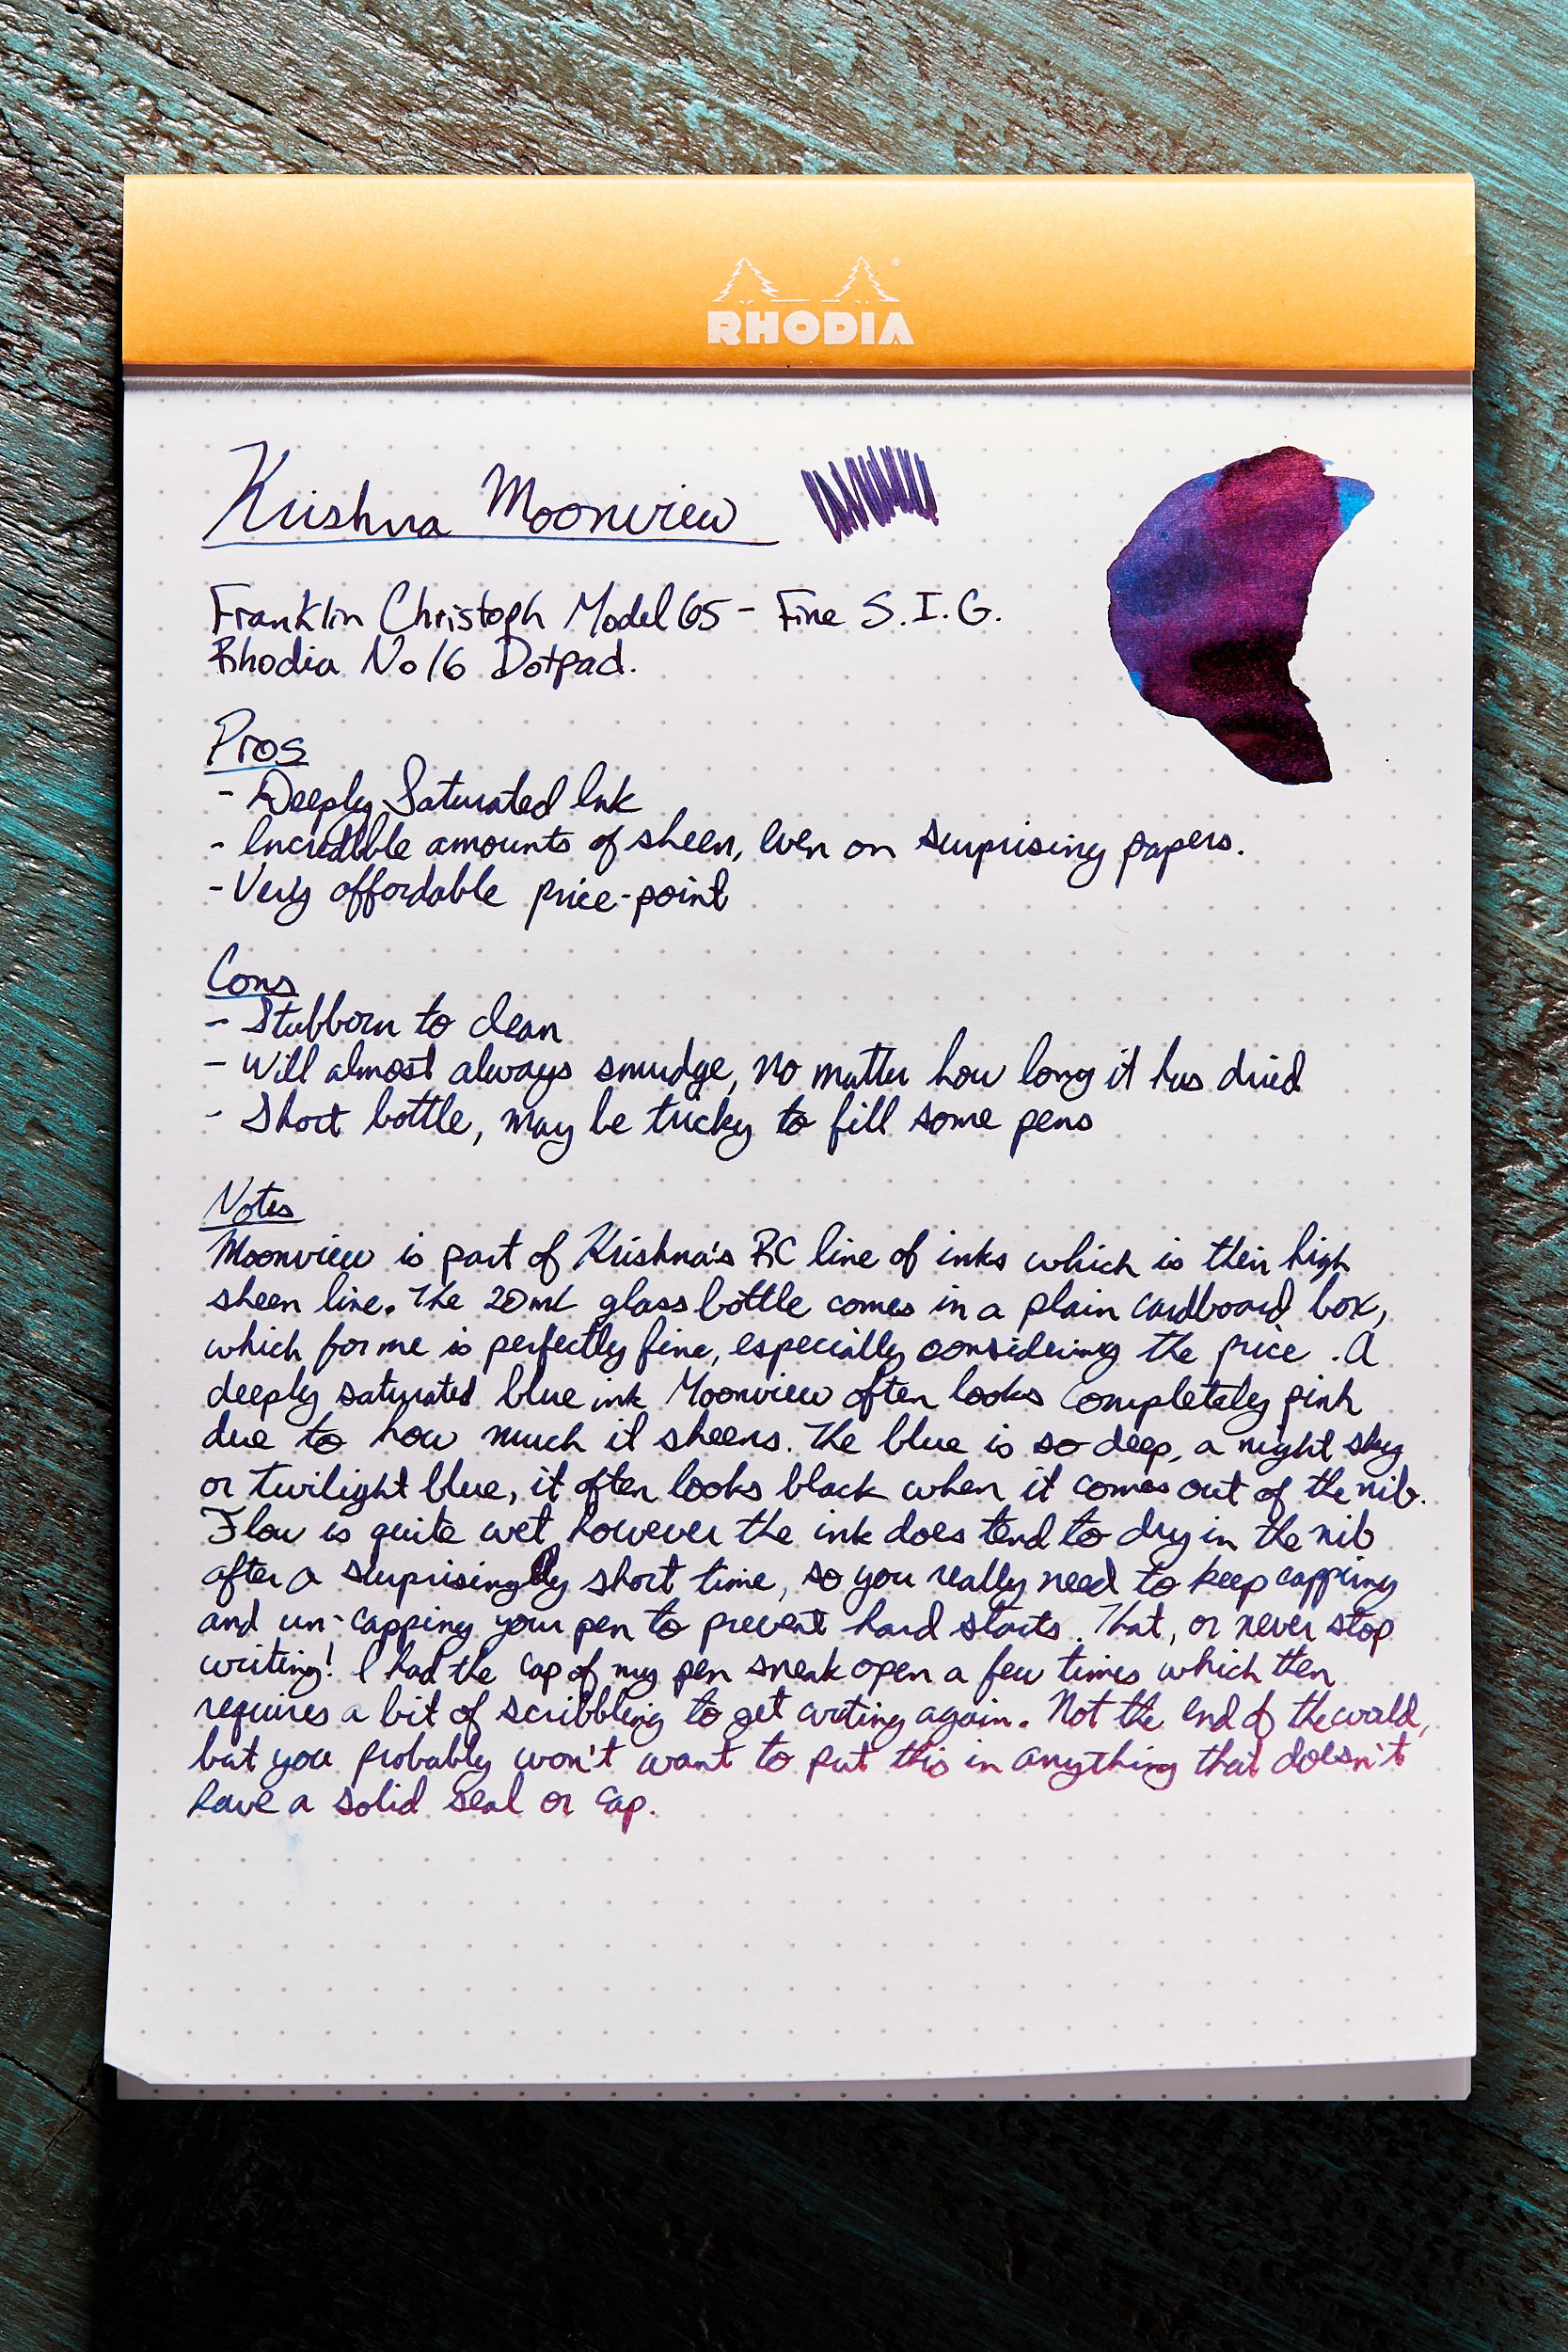 RHODIA
Krishna Moonview
Franklin Christoph Model 65 - Fine S.I.G.
Rhodia No 16 Dotpad.
Pros
- Deeply Saturated Ink
- Incredible amounts of sheen, even on surprising papers.
- Very affordable price-point
Cons
- Stubborn to clean
- Will almost always smudge, no matter how long it has dried
- Short bottle, may be tricky to fill some pens
Notes
Moonview is part of Krishna's RC line of inks which is their high
sheen line. The 20ml glass bottle comes in a plain cardboard box,
which for me is perfectly fine, especially considering the price. A
deeply saturated blue ink Moonview often looks completely pink
due to how much it sheens. The blue is so deep, a night sky
or twilight blue, it often looks black when it comes out of the nib.
Flow is quite wet, however the ink does tend to dry in the nib
after a surprisingly short time, so you really need to keep capping
and un-capping your pen to prevent hard starts. That, or never stop
writing! I had the cap of my pen sneak open a few times which then
requires a bit of scribbling to get writing again. Not the end of the world,
but you probably won't want to put this in anything that doesn't
have a solid seal or cap.